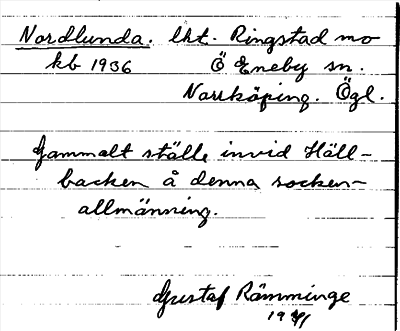 Nordlunda. lht. Ringstad mo
kb 1936 Ö Eneby sn.
Norrköping. Ögl.
Gammalt ställe invid Häll-
backen å denna socken-
allmänning.
Gustaf Rämminge
1941